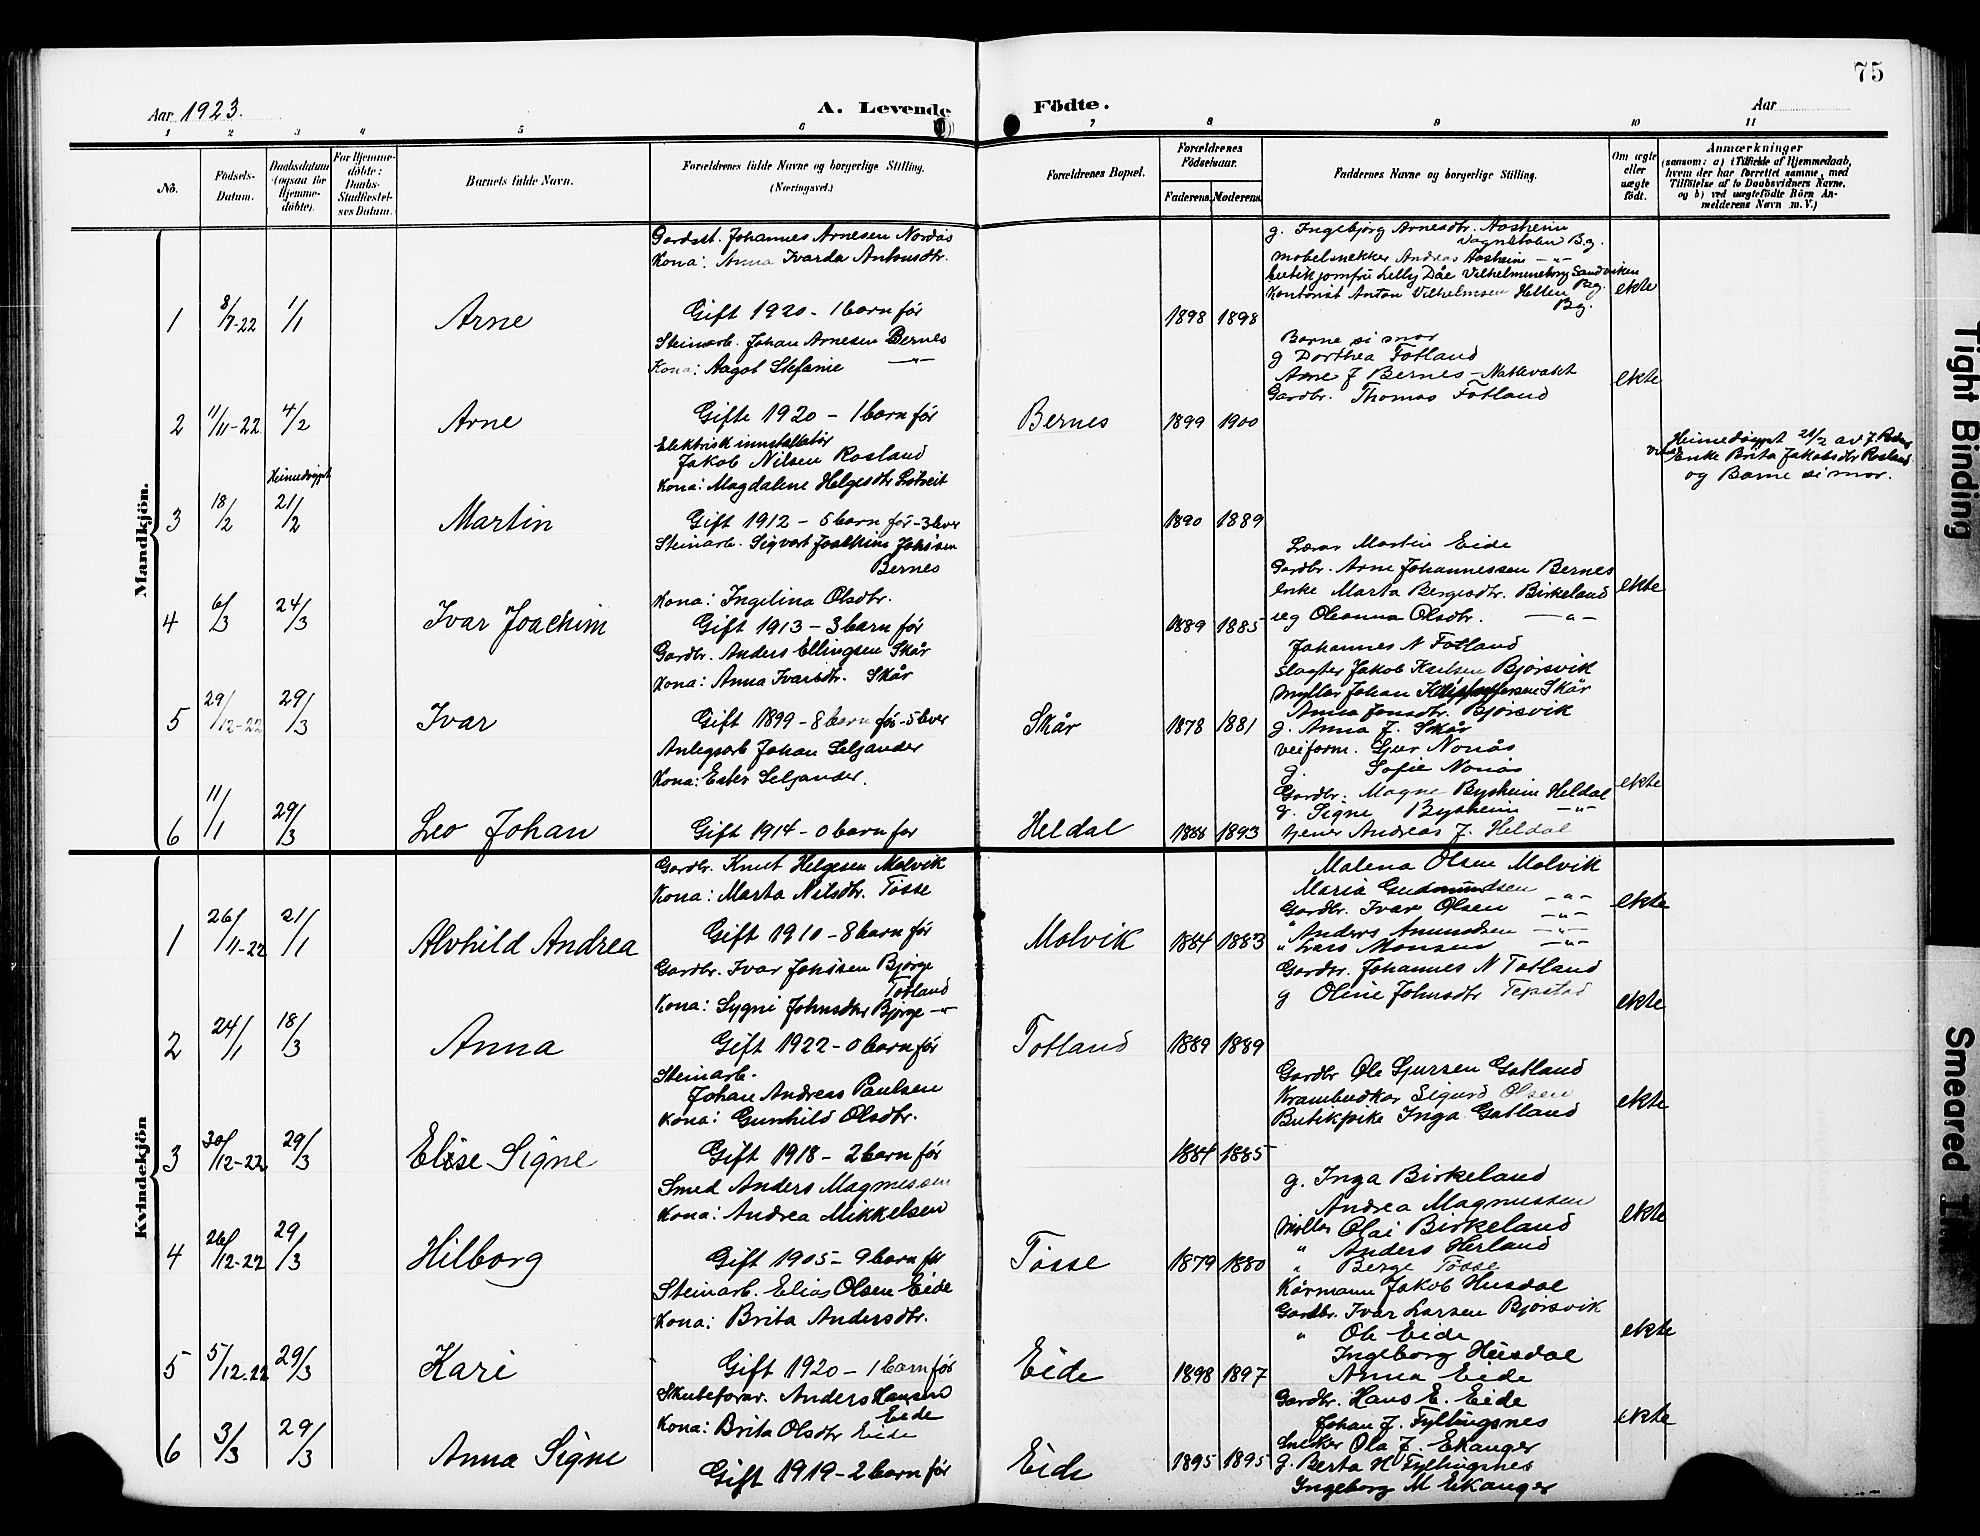 75
Aar 1923.
A. Levende Födte.
Aar
1 2 3 4 5 6 7 8 9 10 11
No.
Födsels-Datum.
Daabsdatum (ogsaa for Hjemme-döbte).
For Hjemme-döbte: Daabs-Stadfæstel-ses Datum.
Barnets fulde Navn.
Forældrenes fulde Navne og borgerlige Stilling. (Næringsvei.)
Forældrenes Bopæl.
Forældrenes Födselsaar.
Faderens. Moderens.
Faddernes Navne og borgerlige Stilling.
Om ægte eller uægte födt.
Anmærkninger
(saasom: a) i Tilfælde af Hjemmedaab, hvem der har forrettet samme, med Tilföielse af to Daabsvidners Navne, og b) ved uægtefödte Börn An-melderens Navn m. V.)
Mandkjön.
Gardsst. Johannes Arnesen Nordås
Kona: Anna Ivarda Antonsdtr.
1 8/7-22 1/1 Arne Gift 1920 - 1 barn før 1898 1898
g. Ingebjørg Arnesdtr. Aasheim
B.g.
møbelsnekker Andreas Aasheim -"-
butikjomfru Lelly Dåe Vilhelmineborg Sandviken
Kontorist Anton Vilhelmsen Hellen Bg.
Bg.
ekte
Steinarb. Johan Arnesen Bernes
Kona: Aagot Stefanie -"-
2 11/11-22 4/2 Arne Gifte 1920 - 1 barn før Bernes 1899 1900
Barne si mor
g Dorthea Totland
Arne J Bernes - Nattevakt
Gardbr. Thomas Totland
ekte
Elektrisk innstallatør
Jakob Nilsen Rosland
Kona: Magdalene Helgesdtr
Heimedøypt
3 18/2 21/2 Martin Gift 1912 - 5 barn før - 3 lever 1890 1889
Heimedøypt 21/2 av J.
Enke Brita Jakobsdtr Rosland
og Barne si mor.
Steinarb. Sigvart Joakkim Johssen
Bernes
Kona: Ingelina Olsdtr.
4 6/3 24/3 Ivar Joachim Gift 1913 - 3 barn før 1889 1885
Lærar Martin Eide
Gardbr. Arne Johannessen Bernes
enke Marta Bergesdtr. Birkeland
ug Oleanna Olsdtr. -"-
ekte
Gardbr. Anders Ellingsen Skår
Kona: Anna Ivarsdtr. Skår
5 29/12-22 29/3 Ivar Gift 1899 - 8 barn før - 5 lever Skår 1878 1881
Johannes N Totland
Slagter Jakob Karlsen Bjørsvik
Myllar Johan Skår
Anna Jonsdtr. Bjørsvik
g. Anna J. Skår
Anlegsarb Johan Seljander
Kona: Ester Seljander.
6 11/1 29/3 Leo Johan Gift 1914 - 0 barn før Heldal 1888 1893
veiform. Sjur Nonås
g. Sofie Nonås
Gardbr. Magne Bysheim Heldal
g. Signe Bysheim -"-
tjener Andreas J. Heldal
ekte
Kvindekjön
Gardbr. Knut Helgesen Molvik
Kona: Marta Nilsdtr. Tøsse
1 26/11-22 21/1 Alvhild Andrea Gift 1910 - 8 barn før Molvik 1884 1883
Malena Olsen Molvik
Maria Gudmundsen -"-
Gardbr. Ivar Olsen -"-
" Anders Amundsen -"-
" Lars Monsen -"-
ekte
Gardbr. Ivar Johssen Bjørge
Totland
Kona: Sygni Johnsdtr Bjørge -"-
2 24/1 18/3 Anna Gift 1922 - 0 barn før Totland 1889 1889
Gardbr. Johannes N Totland
g Oline Johnsdtr Tepstad
ekte
Steinarb.
Johan Andreas Paulsen
Kona: Gunhild Olsdtr.
3 30/12-22 29/3 Elise Signe Gift 1918 - 2 barn før 1884 1885
Gardbr Ole Sjursen Gotland
Krambudkar Sigurd Olsen
Butikpike Inga Gotland
ekte
Smed Anders Magnessen
Kona: Andrea Mikkelsen
4 26/12-22 29/3 Hilborg Gift 1905 - 9 barn før Tøsse 1879 1880
g. Inga Birkeland
Andrea Magnussen
Møllar Olai Birkeland
" Anders Herland
" Berge Tøsse
ekte
Steinarb. Elias Olsen Eide
Kona: Brita Andersdtr.
5 5/12.22 29/3 Kari Gift 1920 - 1 barn før Eide 1898 1897
Kårmann Jakob Husdal
Gardbr. Ivar Larsen Bjørsvik
" Ole Eide
Ingeborg Husdal
Anna Eide
ekte
Skuteførar. Anders Hansen
Eide
Kona: Brita Olsdtr Eide
6 3/3 29/3 Anna Signe Gift 1919 - 2 barn før Eide 1895 1895
Gardbr. Hans E. Eide
Johan J. Fyllingsnes
Snekker Ola J. Ekanger
g. Berta H Fyllingsnes
Ingeborg M Ekanger
ekte
Tight Binding
Smeared Ink